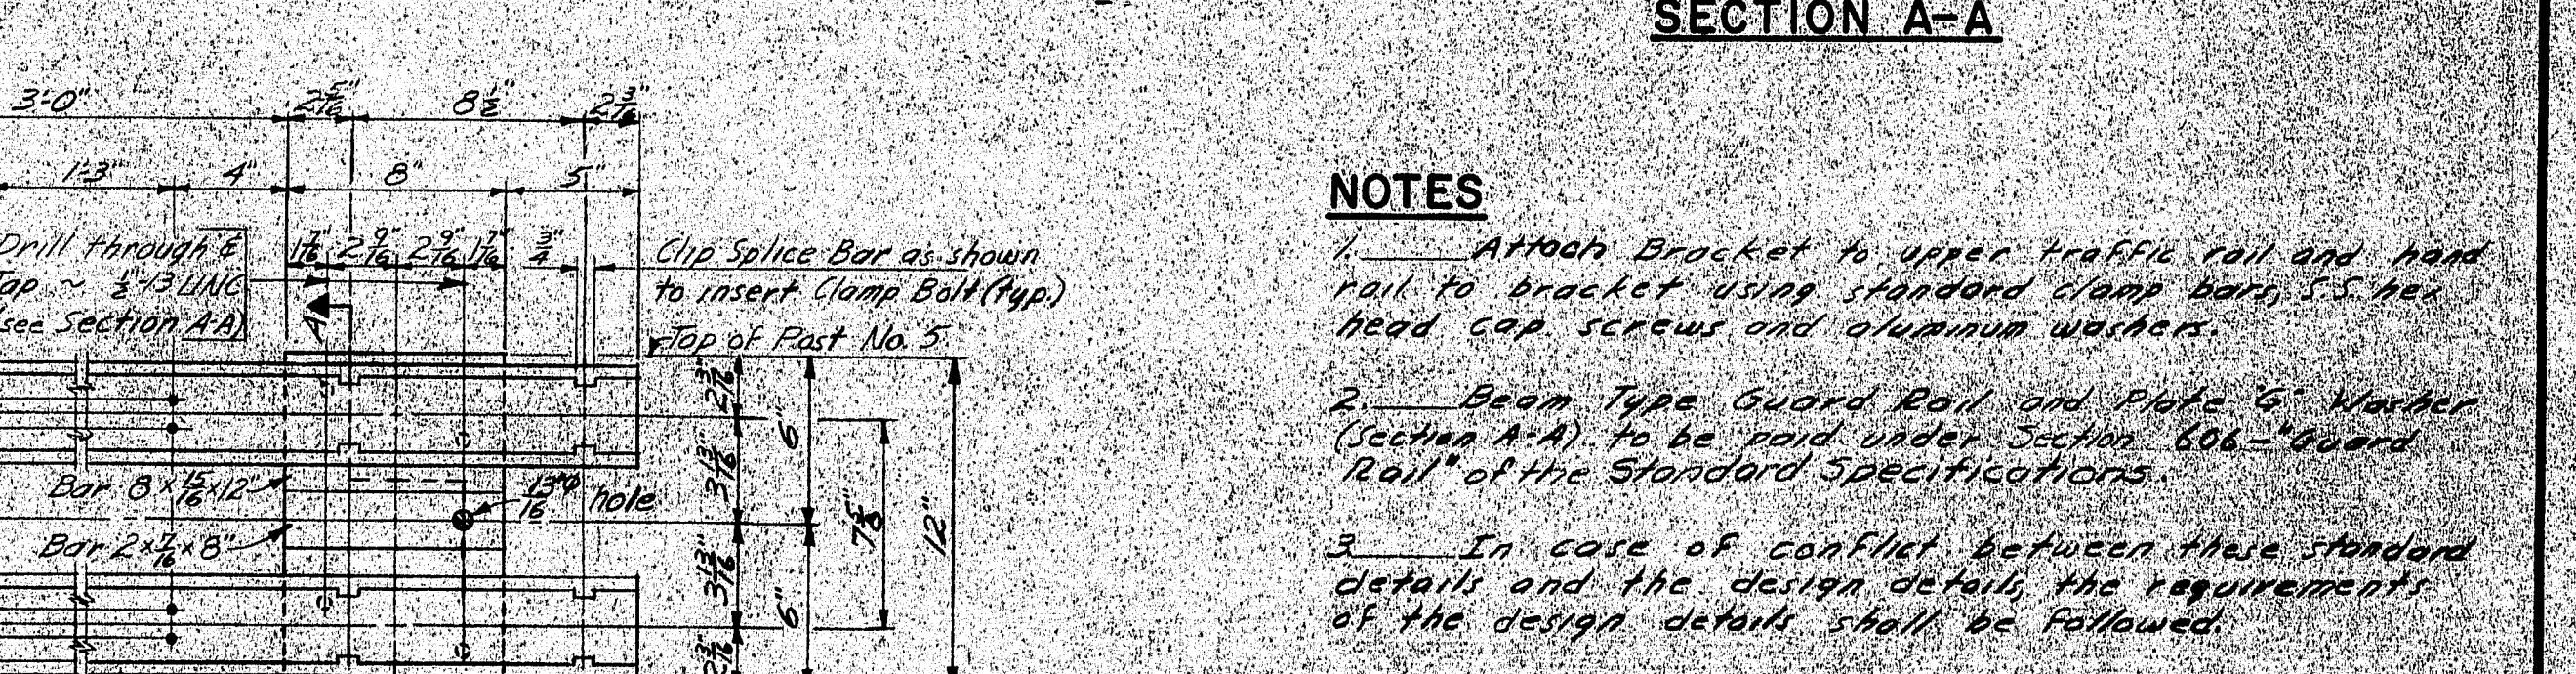 SECTION A-A
3'-0" 2 5/16" 8 1/2" 2 3/16"
1'-3" 4" 8" 5"
1 7/16" 2 9/16" 2 9/16" 1 7/16" 3/4"
Drill through &
Tap ~ 1/2-13 UNC
(see Section A-A)
A
Clip Splice Bar as shown
to insert Clamp Bolt (typ.)
Top of Post No. 5
2 3/16"
3 13/16"
6"
7 5/8"
12"
Bar 8 x 15/16 x 12"
13/16"φ hole
Bar 2 x 7/16 x 8"
3 13/16"
6"
2 3/16"
NOTES
1. Attach Bracket to upper traffic rail and hand
rail to bracket using standard clamp bars, S.S. hex
head cap screws and aluminum washers.
2. Beam Type Guard Rail and Plate "G" Washer
(Section A-A) to be paid under Section 606-"Guard
Rail" of the Standard Specifications.
3. In case of conflict between these standard
details and the design details, the requirements
of the design details shall be followed.